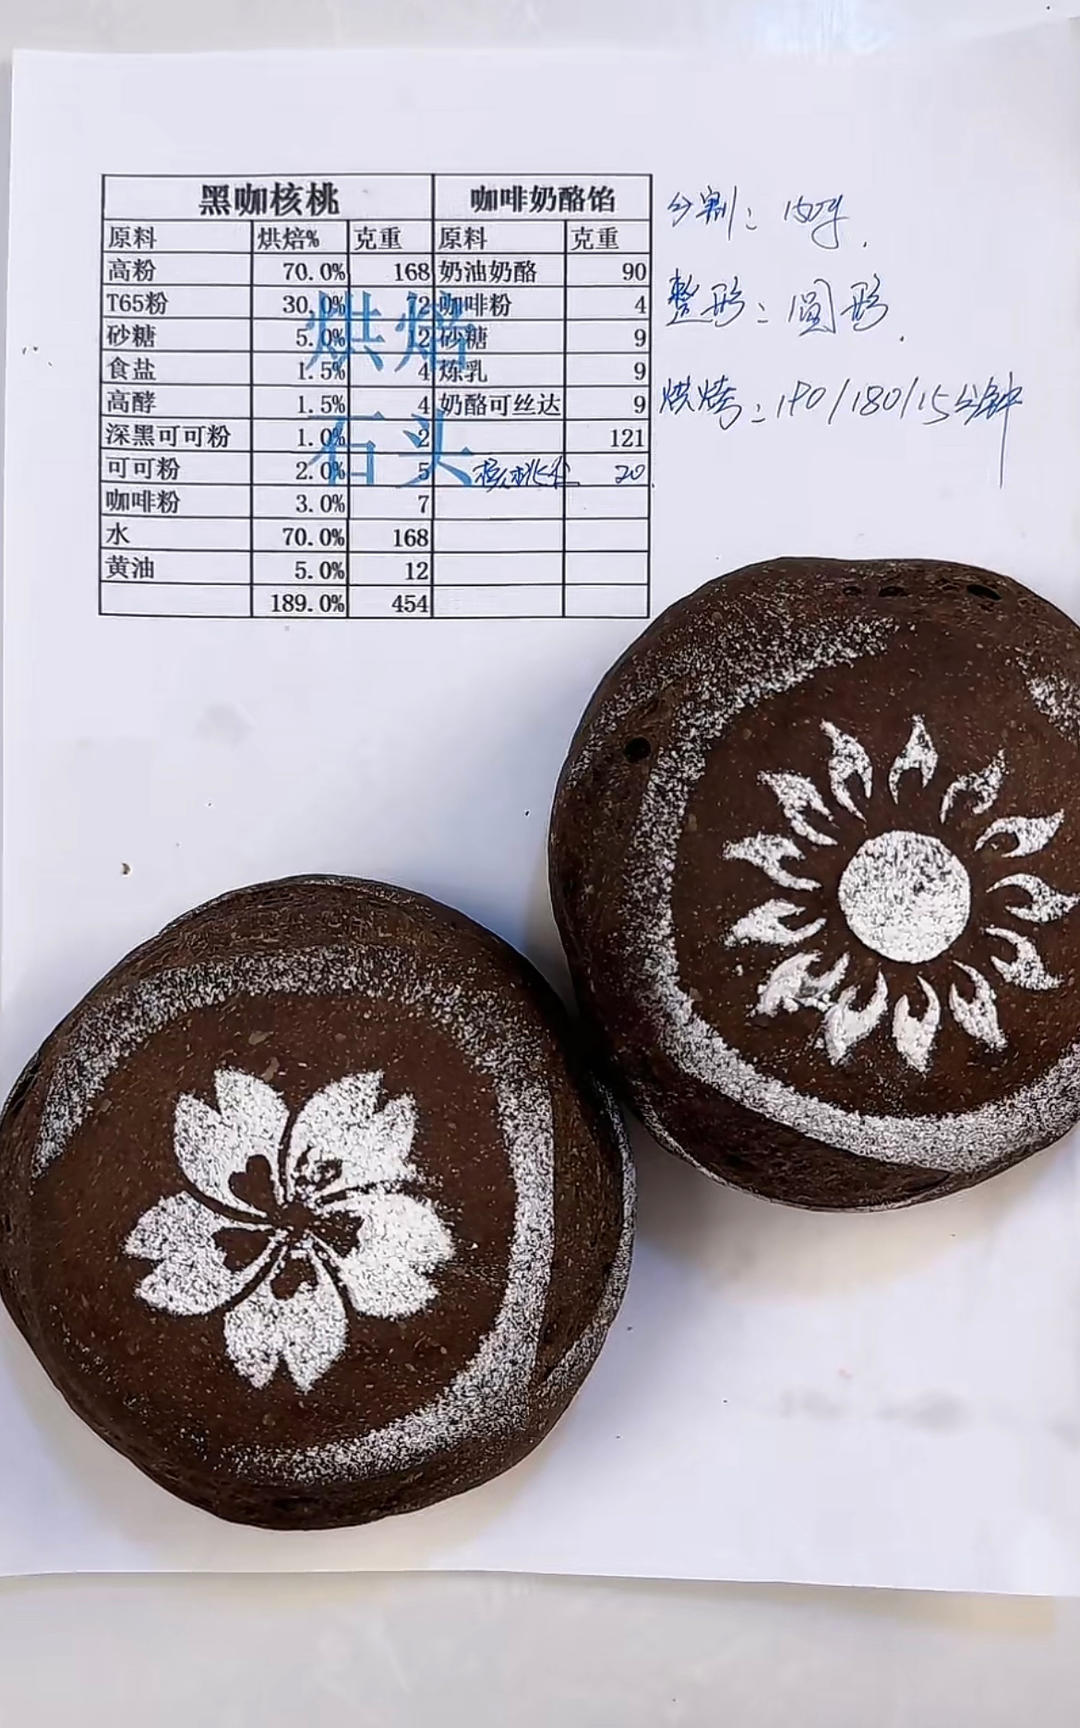 黑咖核桃 咖啡奶酪馅 分割：150g.
原料 烘焙% 克重 原料 克重
高粉 70.0% 168 奶油奶酪 90
T65粉 30.0% 72 咖啡粉 4 整形：圆形.
砂糖 5.0% 12 砂糖 9
食盐 1.5% 4 炼乳 9
高酵 1.5% 4 奶酪可丝达 9 烘烤：190/180/15分钟
深黑可可粉 1.0% 2 121
可可粉 2.0% 5 核桃 20
咖啡粉 3.0% 7
水 70.0% 168
黄油 5.0% 12
189.0% 454
烘焙
石头